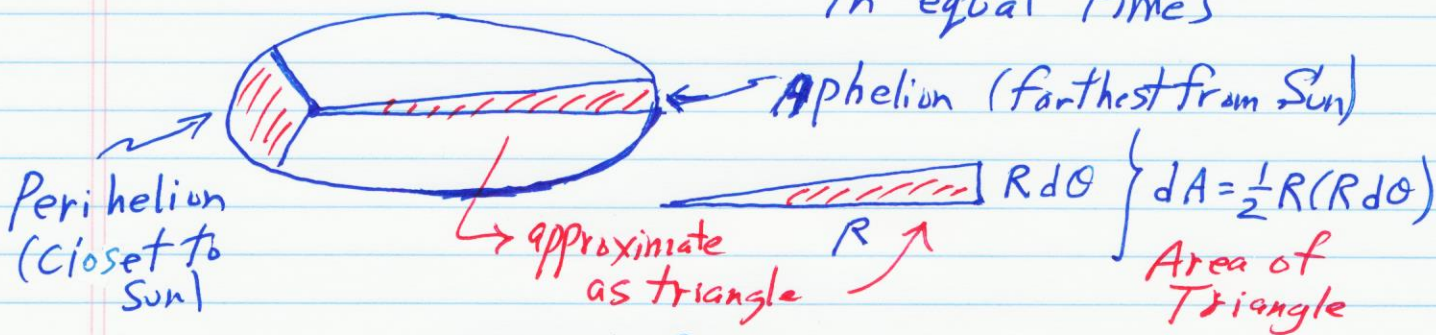 in equal times
Aphelion (farthest from Sun)
Perihelion
(Closet to
Sun)
approximate
as triangle
R
R dθ
dA = ½ R (R dθ)
Area of
Triangle